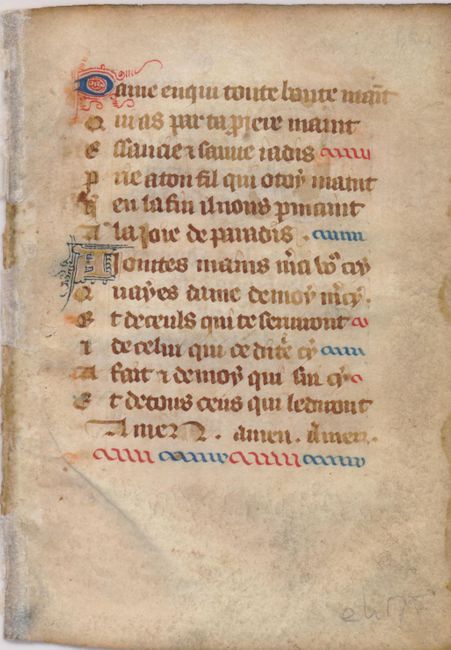 Dame en qui toute bonte maīt
Qui as par ta priere maint
Essaucie ⁊ sauve iadis
Prie a ton fil qui o toy maint
Q̄ en la fin il nous p̄maint
A la ioie de paradis .
A Jointes mains
Q̄ naÿes dame de moÿ m̄cy.
Et de ceuls qui te seruiront
I de celui qui ce dite
A fait ⁊ de moÿ qui sui cy
Et de tous ceus qui le diront
Amen . amen . amen .